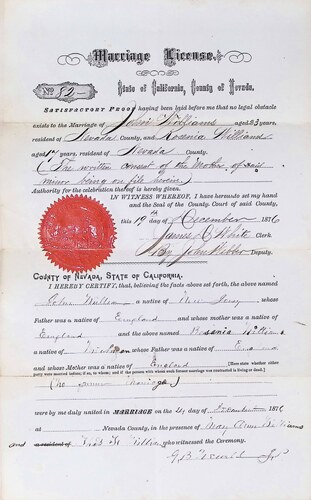 Marriage License.
No. 82 State of California, County of Nevada.
SATISFACTORY PROOF having been laid before me that no legal obstacle
exists to the Marriage of John Williams aged 23 years,
resident of Nevada County, and Rosenia Williams
aged 17 years, resident of Nevada County.
(The written consent of the Mother of said
minor being on file herein)
Authority for the celebration thereof is hereby given.
IN WITNESS WHEREOF, I have hereunto set my hand
and the Seal of the County Court of said County,
this 19th day of December 1876
James D. White Clerk.
By John Webber Deputy.
COUNTY OF NEVADA, STATE OF CALIFORNIA.
I HEREBY CERTIFY, that believing the facts above set forth, the above named
John Williams, a native of New Jersey, whose
Father was a native of England and whose mother was a native of
England and the above named Rosenia Williams
a native of whose Father was a native of England
and whose Mother was a native of England
(No former Marriage)
were by me duly united in MARRIAGE on the day of December 1876
Nevada County, in the presence of Mary Ann Williams
and a resident of who witnessed the Ceremony.
G. B. J.P.